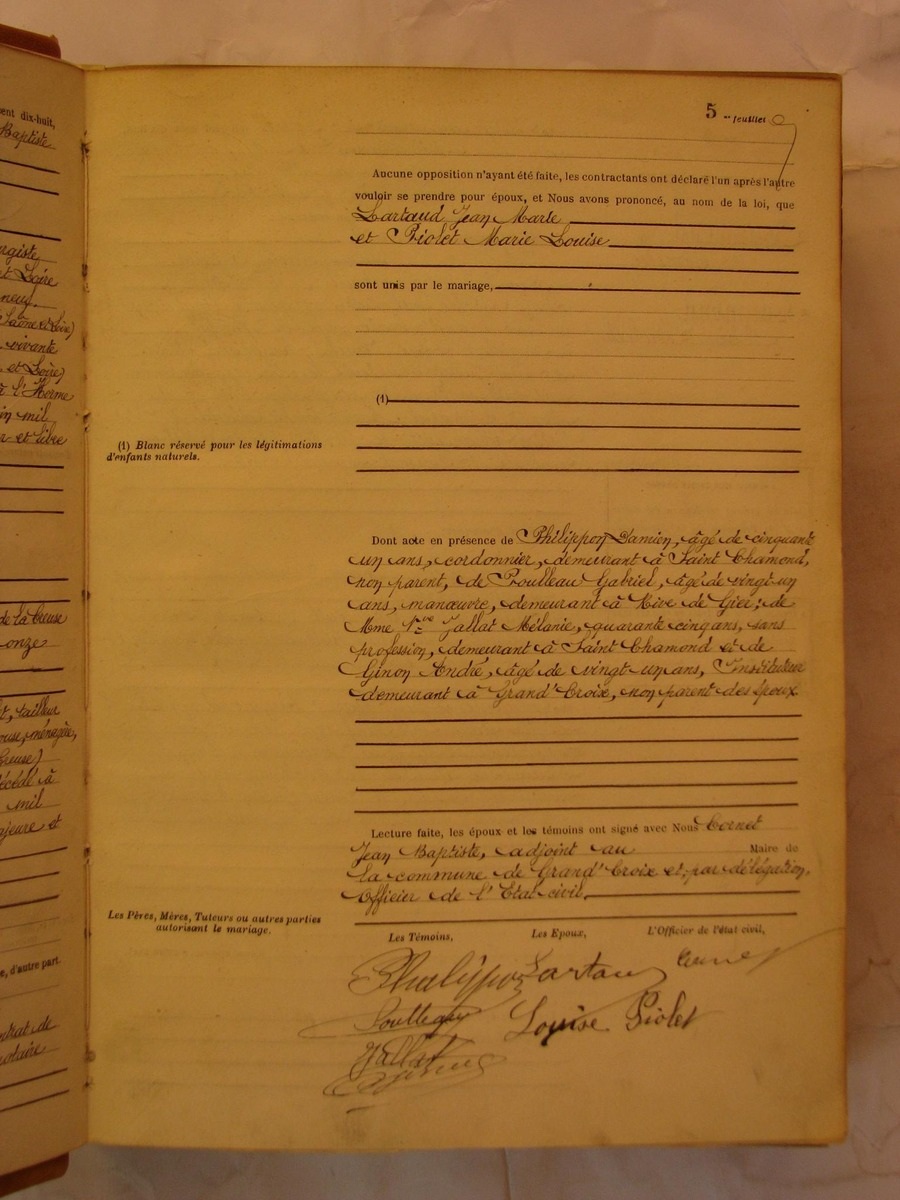 ent dix-huit,
Baptiste
et Loire
(Saône et Loire)
vivante
et Loire)
à l'Horme
mil
et libre
de la Creuse
onze
tailleur
ménagère,
Creuse)
décédé à
mil
majeure et
e, d'autre part.
contrat de
notaire
5 me feuillet
Aucune opposition n'ayant été faite, les contractants ont déclaré l'un après l'autre
vouloir se prendre pour époux, et Nous avons prononcé, au nom de la loi, que
Lartaud Jean Marie
et Piolet Marie Louise
sont unis par le mariage,
(1)
(1) Blanc réservé pour les légitimations
d'enfants naturels.
Dont acte en présence de Philippon Damien, âgé de cinquante
un ans, cordonnier, demeurant à Saint Chamond,
non parent, de Poulleau Gabriel, âgé de vingt un
ans, manœuvre, demeurant à Rive de Gier; de
Mme Vve Jallat Mélanie, quarante cinq ans, sans
profession, demeurant à Saint Chamond et de
Ginon André, âgé de vingt un ans, Instituteur
demeurant à Grand'Croix, non parent des époux
Lecture faite, les époux et les témoins ont signé avec Nous Cornet
Jean Baptiste, adjoint au Maire de
la commune de Grand'Croix et par délégation,
Officier de l'Etat civil.
Les Pères, Mères, Tuteurs ou autres parties
autorisant le mariage.
Les Témoins, Les Epoux, L'Officier de l'état civil,
Philippon Lartaud Cornet
Louise Piolet
Jallat